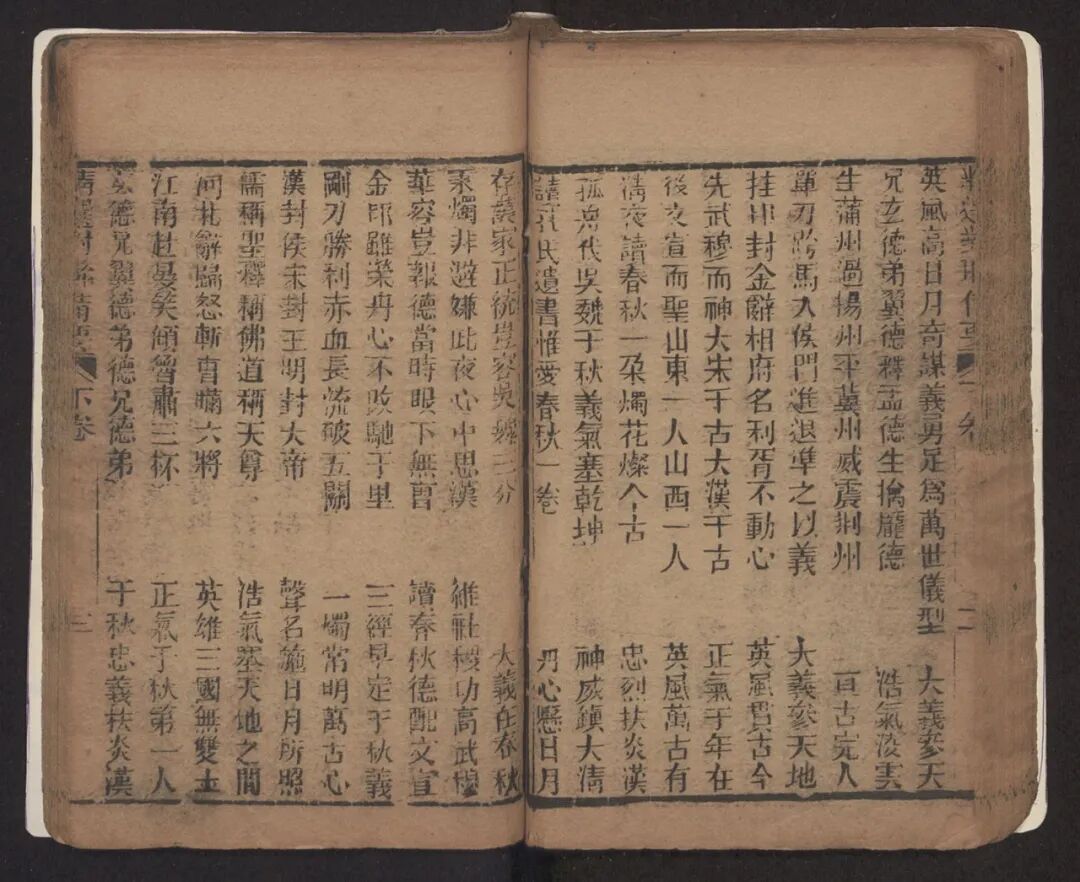 英風高日月奇謀義勇足爲萬世儀型　大義參天
兄玄德弟翼德釋孟德生擒龐德　浩氣凌雲
生蒲州過揚州平冀州威震荆州　亘古完人
單刀跨馬入侯門進退準之以義　大義參天地
挂印封金辭相府名利胥不動心　英風貫古今
先武穆而神大宋千古大漢千古　正氣千年在
後文宣而聖山東一人山西一人　英風萬古有
淸夜讀春秋一朶燭花燦今古　忠烈扶炎漢
孤舟代吳魏千秋義氣塞乾坤　神威鎮大淸
讀孔氏遺書惟愛春秋一卷　丹心懸日月
存漢家正統豈容吳魏三分　大義在春秋
秉燭非避嫌此夜心中思漢　維社稷功高武穆
華容豈報德當時眼下無曹　讀春秋德配文宣
金印雖榮丹心不改馳千里　三經早定千秋義
剛刀勝利赤血長流破五關　一燭常明萬古心
漢封侯宋封王明封大帝　聲名施日月所照
儒稱聖釋稱佛道稱天尊　浩氣塞天地之間
河北辭歸怒斬曹瞞六將　英雄三國無雙士
江南赴宴笑傾魯肅三杯　正氣千秋第一人
玄德兄翼德弟德兄德弟　千秋忠義扶炎漢
下卷　三